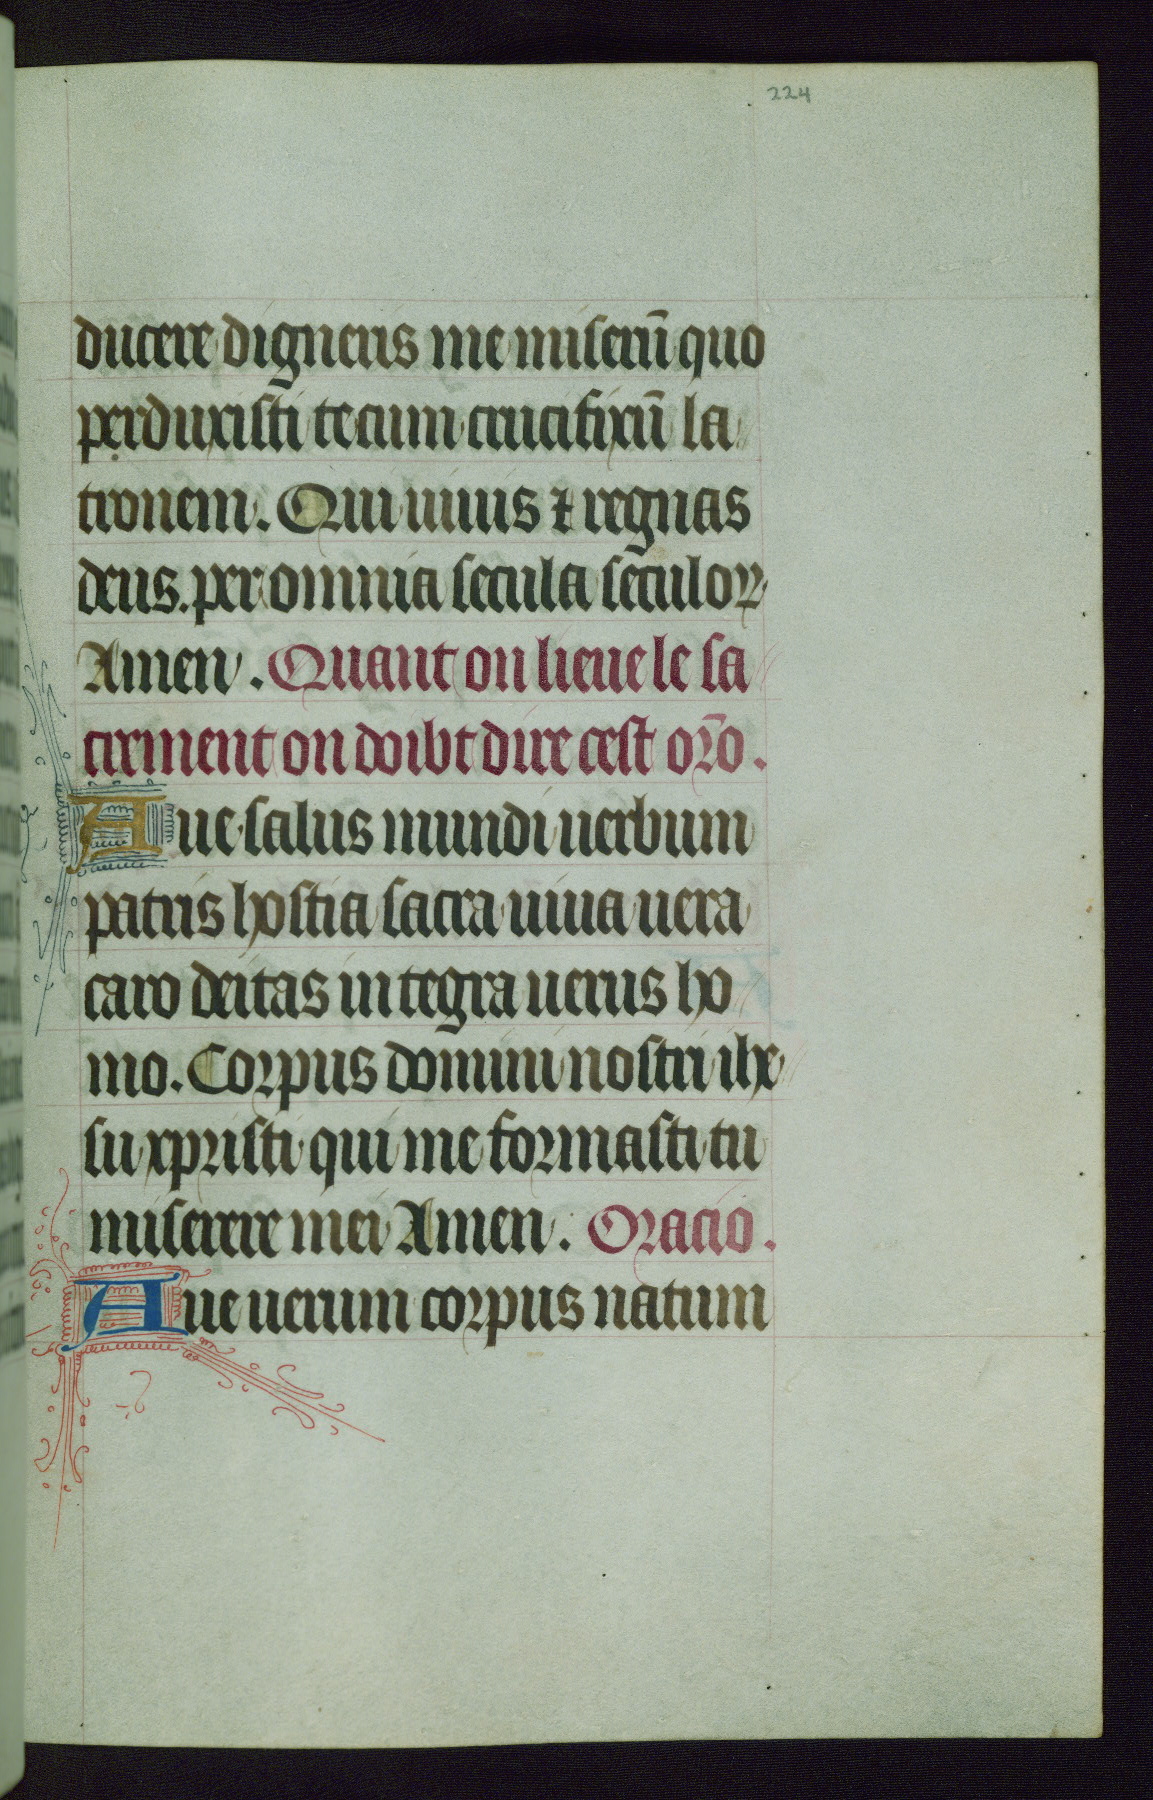 224
ducere digneris me miserū quo
perduxisti tecum crucifixū la
tronem. Qui uiuis ⁊ regnas
deus. per omnia secula seculoꝝ
Amen. Quant on lieue le sa
crement on doibt dire cest orō.
Aue salus mundi uerbum
patris hostia sacra uiua uera
caro deitas integra uerus ho
mo. Corpus domini nostri ihe
su xpristi qui me formasti tu
miserere mei Amen. Oracio.
Aue uerum corpus natum